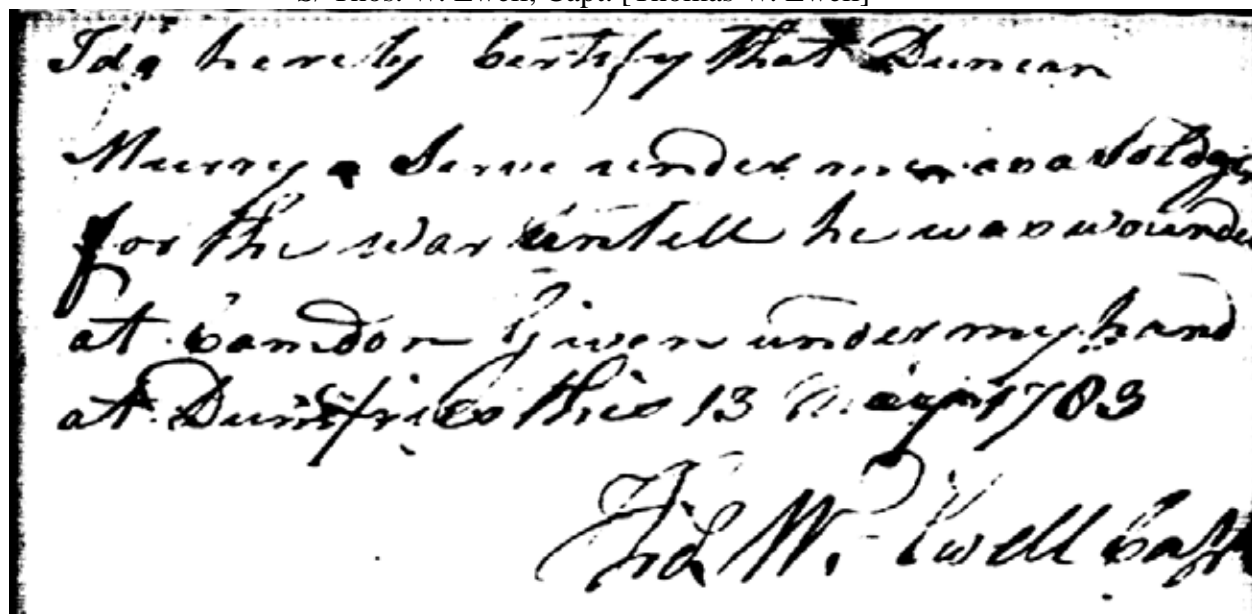 S/ Thos. W. Ewell, Capt. [Thomas W. Ewell]
I do hereby Certify that Duncan
Murry a Serve under me as a Soldger
for the War untell he was wounde
at Camdon Given under my hand
at Dumfries this 13 May 1783
Thos W. Ewell Capt